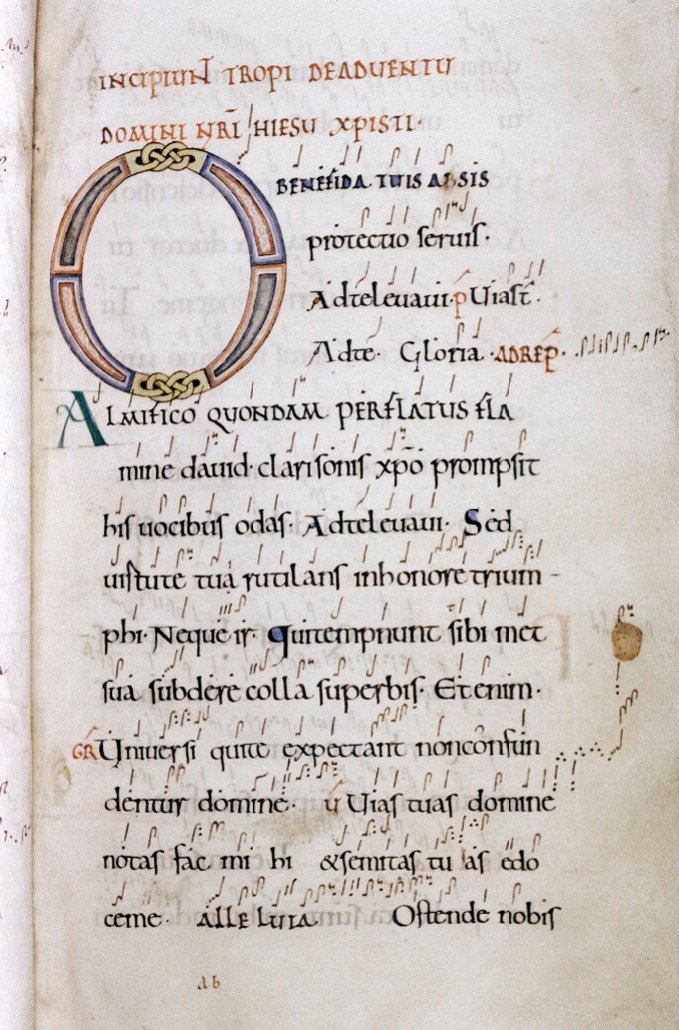 INCIPIUNT TROPI DE ADUENTU
DOMINI NR̄I HIESU XPISTI·
O BENEFIDA TUIS ABSIS
protectio seruis·
Ad te leuaui· P Uias t̄.
Ad te· Gloria· AD REP̄·
ALMIFICO QUONDAM PERFLATUS FLA
mine dauid· clarisonis xp̄o prompsit
his uocibus odas· Ad te leuaui· Sed
uirtute tua rutilans in honore trium-
phi· Neque ir· Qui tempnunt sibi met
sua subdere colla superbis· Etenim·
GR̄ Uniuersi qui te expectant non confun
dentur domine· ū Uias tuas domine
notas fac mi hi & semitas tu as edo
ceme· ALLE LUIA Ostende nobis